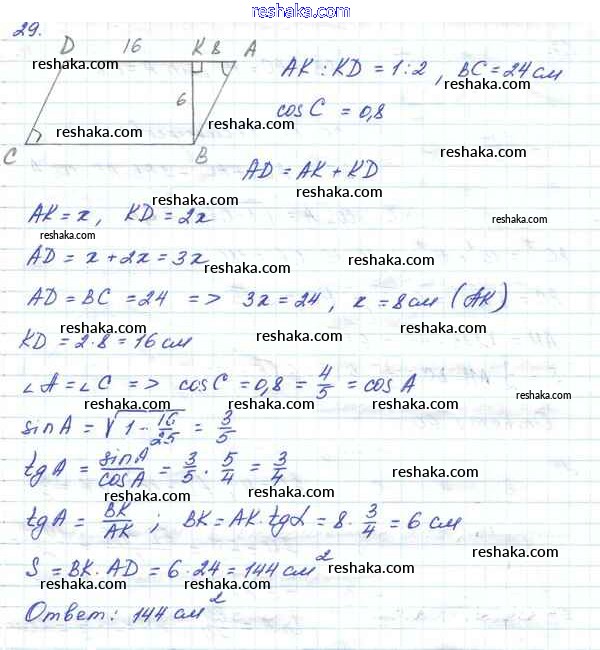 reshaka.com
29.
D 16 K 8 A
reshaka.com
AK : KD = 1 : 2, BC = 24 см
reshaka.com
6
cos C = 0,8
reshaka.com
reshaka.com
reshaka.com
C B
AD = AK + KD
reshaka.com
AK = x, KD = 2x
reshaka.com
reshaka.com
AD = x + 2x = 3x
reshaka.com
reshaka.com
AD = BC = 24 => 3x = 24, x = 8 см (AK)
reshaka.com
reshaka.com
KD = 2 · 8 = 16 см
∠A = ∠C => cos C = 0,8 = 4/5 = cos A
reshaka.com
reshaka.com
sin A = √1 - 16/25 = 3/5
reshaka.com
tg A = sin A/cos A = 3/5 · 5/4 = 3/4
reshaka.com
reshaka.com
tg A = BK/AK ; BK = AK · tg L = 8 · 3/4 = 6 см
reshaka.com
reshaka.com
S = BK · AD = 6 · 24 = 144 см²
reshaka.com
reshaka.com
Ответ: 144 см²
reshaka.com
reshaka.com